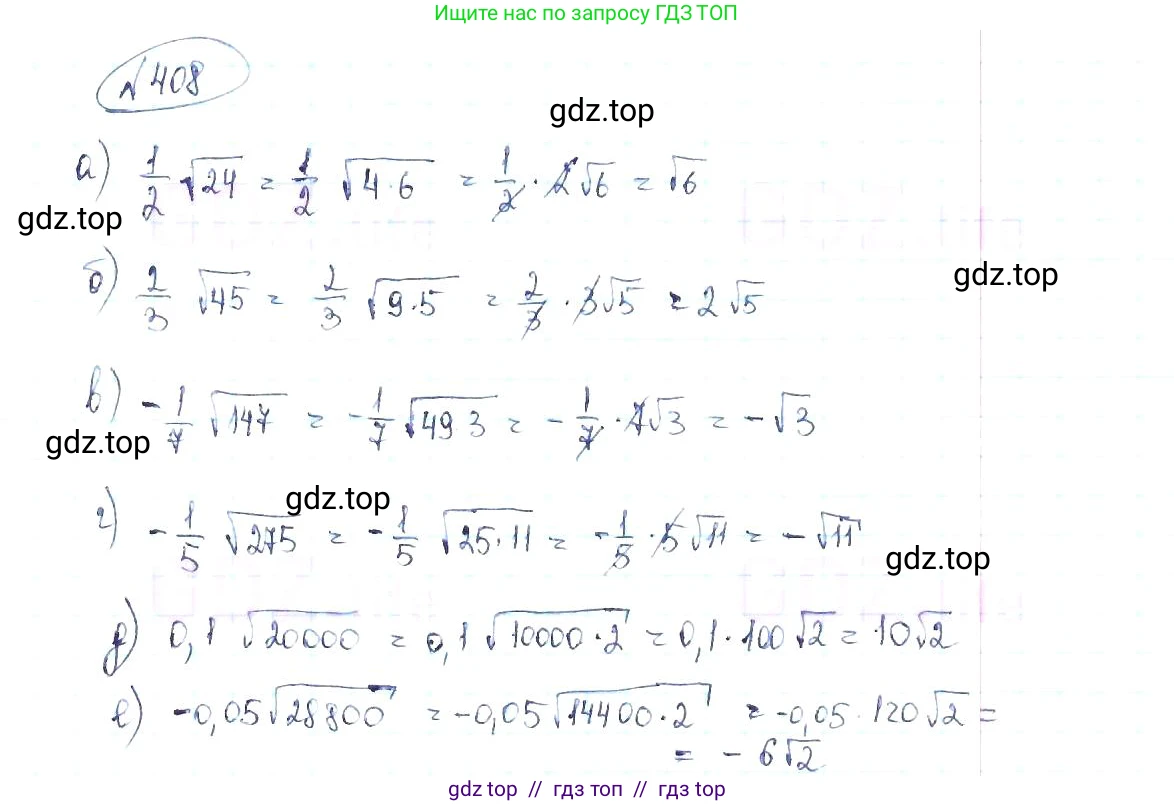 Ищите нас по запросу ГДЗ ТОП
№ 408
gdz.top
а) 1/2 √24 = 1/2 √4·6 = 1/2 · 2√6 = √6
gdz.top
б) 2/3 √45 = 2/3 √9·5 = 2/3 · 3√5 = 2√5
gdz.top
в) -1/7 √147 = -1/7 √49 3 = -1/7 · 7√3 = -√3
gdz.top
gdz.top
г) -1/5 √275 = -1/5 √25·11 = -1/5 · 5√11 = -√11
gdz.top
д) 0,1 √20000 = 0,1 √10000·2 = 0,1·100√2 = 10√2
е) -0,05√28800 = -0,05√14400·2 = -0,05·120√2 =
= -6√2
gdz.top // гдз топ // гдз top